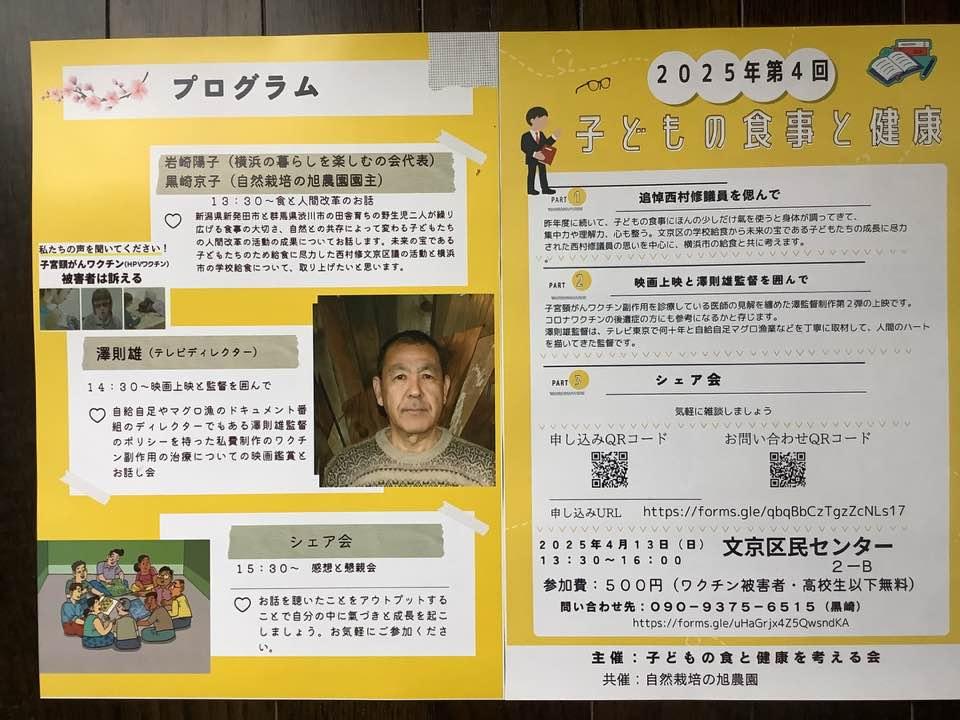 プログラム
岩崎陽子（横浜の暮らしを楽しむの会代表）
黒崎京子（自然栽培の旭農園園主）
13：30～食と人間改革のお話
新潟県新発田市と群馬県渋川市の田舎育ちの野生児二人が繰り
広げる食事の大切さ、自然との共存によって変わる子どもたち
の人間改革の活動の成果についてお話します。未来の宝である
子どもたちのため給食に尽力した西村修文京区議の活動と横浜
市の学校給食について、取り上げたいと思います。
私たちの声を聞いてください！
子宮頸がんワクチン(HPVワクチン)
被害者は訴える
澤則雄（テレビディレクター）
14：30～映画上映と監督を囲んで
自給自足やマグロ漁のドキュメント番
組のディレクターでもある澤則雄監督
のポリシーを持った私費制作のワクチ
ン副作用の治療についての映画鑑賞と
お話し会
シェア会
15：30～ 感想と懇親会
お話を聴いたことをアウトプットする
ことで自分の中に氣づきと成長を起こ
しましょう。お気軽にご参加くださ
い。
2025年第4回
子どもの食事と健康
PART 1 追悼西村修議員を偲んで
昨年度に続いて、子どもの食事にほんの少しだけ氣を使うと身体が調ってきて、
集中力や理解力、心も整う。文京区の学校給食から未来の宝である子どもたちの成長に尽力
された西村修議員の思いを中心に、横浜市の給食と共に考えます。
PART 2 映画上映と澤則雄監督を囲んで
子宮頸がんワクチン副作用を診療している医師の見解を纏めた澤監督制作第２弾の上映です。
コロナワクチンの後遺症の方にも参考になるかと存じます。
澤則雄監督は、テレビ東京で何十年と自給自足マグロ漁業などを丁寧に取材して、人間のハート
を描いてきた監督です。
PART 3 シェア会
気軽に雑談しましょう
申し込みQRコード お問い合わせQRコード
申し込みURL https://forms.gle/qbqBbCzTgzZcNLs17
2025年4月13日（日） 文京区民センター
13：30～16：00 2－B
参加費：500円（ワクチン被害者・高校生以下無料）
問い合わせ先：090-9375-6515（黒崎）
https://forms.gle/uHaGrjx4Z5QwsndKA
主催：子どもの食と健康を考える会
共催：自然栽培の旭農園